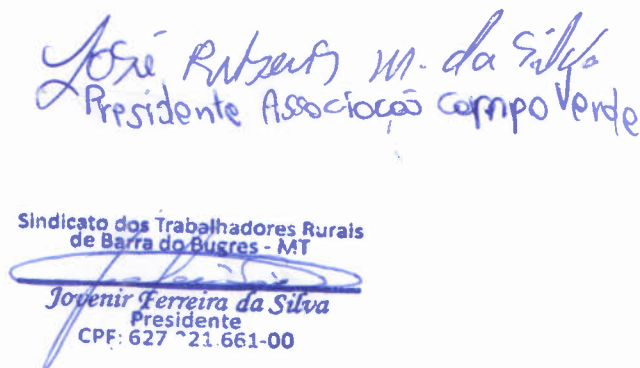 José Rubens M. da Silva
Presidente Associacão Campo Verde
Sindicato dos Trabalhadores Rurais
de Barra do Bugres - MT
Jovenir Ferreira da Silva
Presidente
CPF: 627 21.661-00